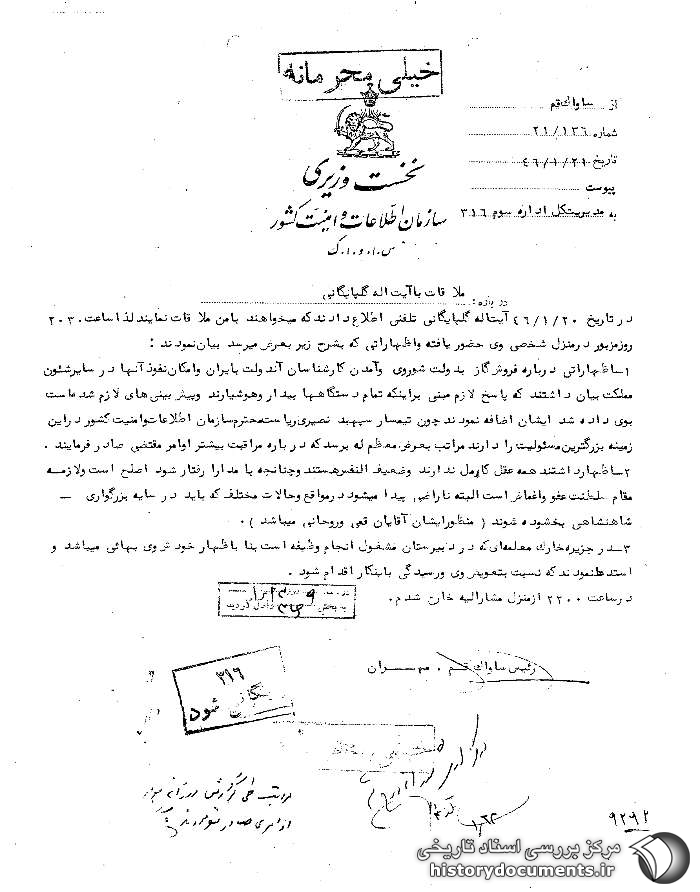 خیلی محرمانه
از ساواک قم
شماره ۲۱/۱۳۶
تاریخ ۴۶/۱/۲۱
پیوست
به مدیریت کل اداره سوم ۳۱۶
نخست وزیری
سازمان اطلاعات و امنیت کشور
س.ا.و.ا.ک
درباره: ملاقات با آیت اله گلپایگانی
در تاریخ ۴۶/۱/۲۰ آیت اله گلپایگانی تلفنی اطلاع دادند که میخواهند با من ملاقات نمایند لذا ساعت ۲۰۳۰
روز مزبور در منزل شخصی وی حضور یافته و اظهاراتی که بشرح زیر بعرض میرسد بیان نمودند :
۱ـ اظهاراتی درباره فروش گاز بدولت شوروی و آمدن کارشناسان آندولت بایران و امکان نفوذ آنها در سایر شئون
مملکت بیان داشتند که پاسخ لازم مبنی براینکه تمام دستگاهها بیدار و هوشیارند و پیش بینی های لازم شده است
بوی داده شد ایشان اضافه نمودند چون تیمسار سپهبد نصیری ریاست محترم سازمان اطلاعات و امنیت کشور در این
زمینه بزرگترین مسئولیت را دارند مراتب بعرض معظم له برسد که درباره مراقبت بیشتر اوامر مقتضی صادر فرمایند .
۲ـ اظهار داشتند همه عقل کامل ندارند و ضعیف النفس هستند و چنانچه با مدارا رفتار شود اصلح است و لازمه
مقام سلطنت عفو و اغماض است البته ناراضی پیدا میشود در مواقع و حالات مختلف که باید در سایه بزرگواری ـ
شاهنشاهی بخشوده شوند ( منظور ایشان آقایان قمی و روحانی میباشد ) .
۳ـ در جزیره خارک معلمه ای که در دبیرستان مشغول انجام وظیفه است بنا باظهار خودش وی بهائی میباشد و
استدعا نمودند که نسبت بتعویض وی و رسیدگی باینکار اقدام شود .
در ساعت ۲۲۰۰ از منزل مشارالیه خارج شدم .
رئیس ساواک قم . مهران
۳۱۶
شود
۹۲۹۲
مرکز بررسی اسناد تاریخی
historydocuments.ir